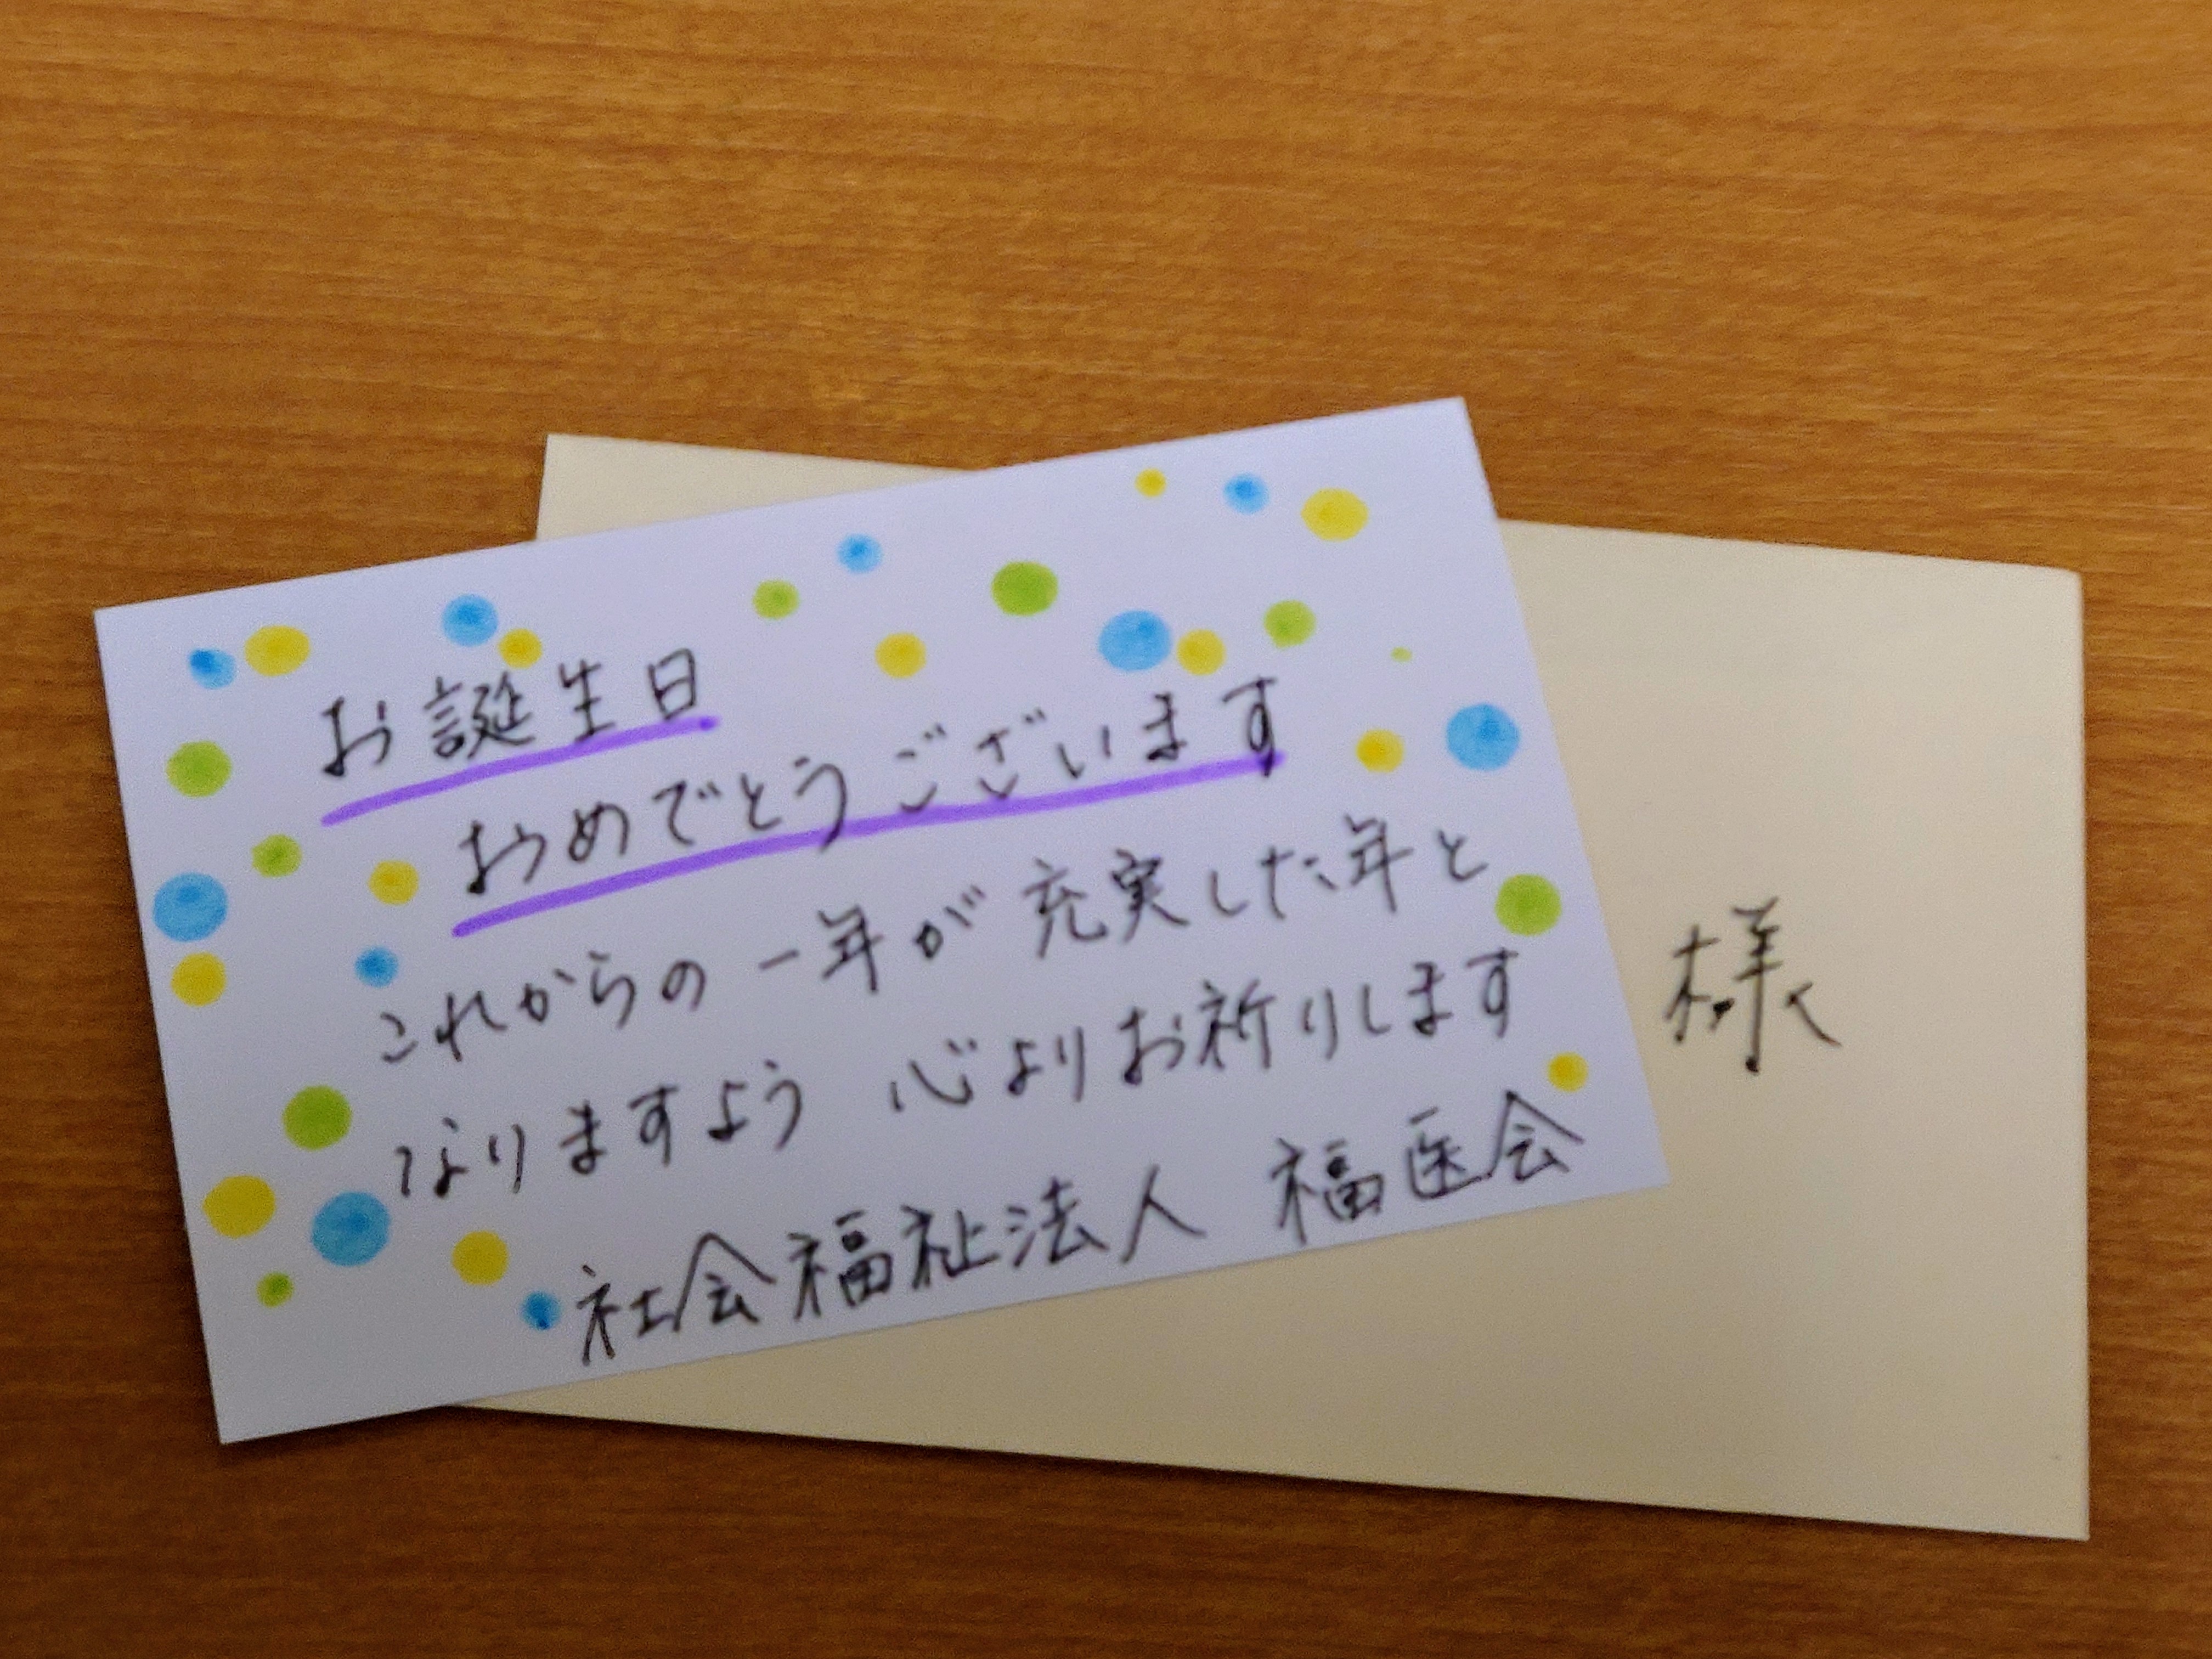 お誕生日
おめでとうございます
これからの一年が充実した年と
なりますよう 心よりお祈りします
社会福祉法人 福医会
様